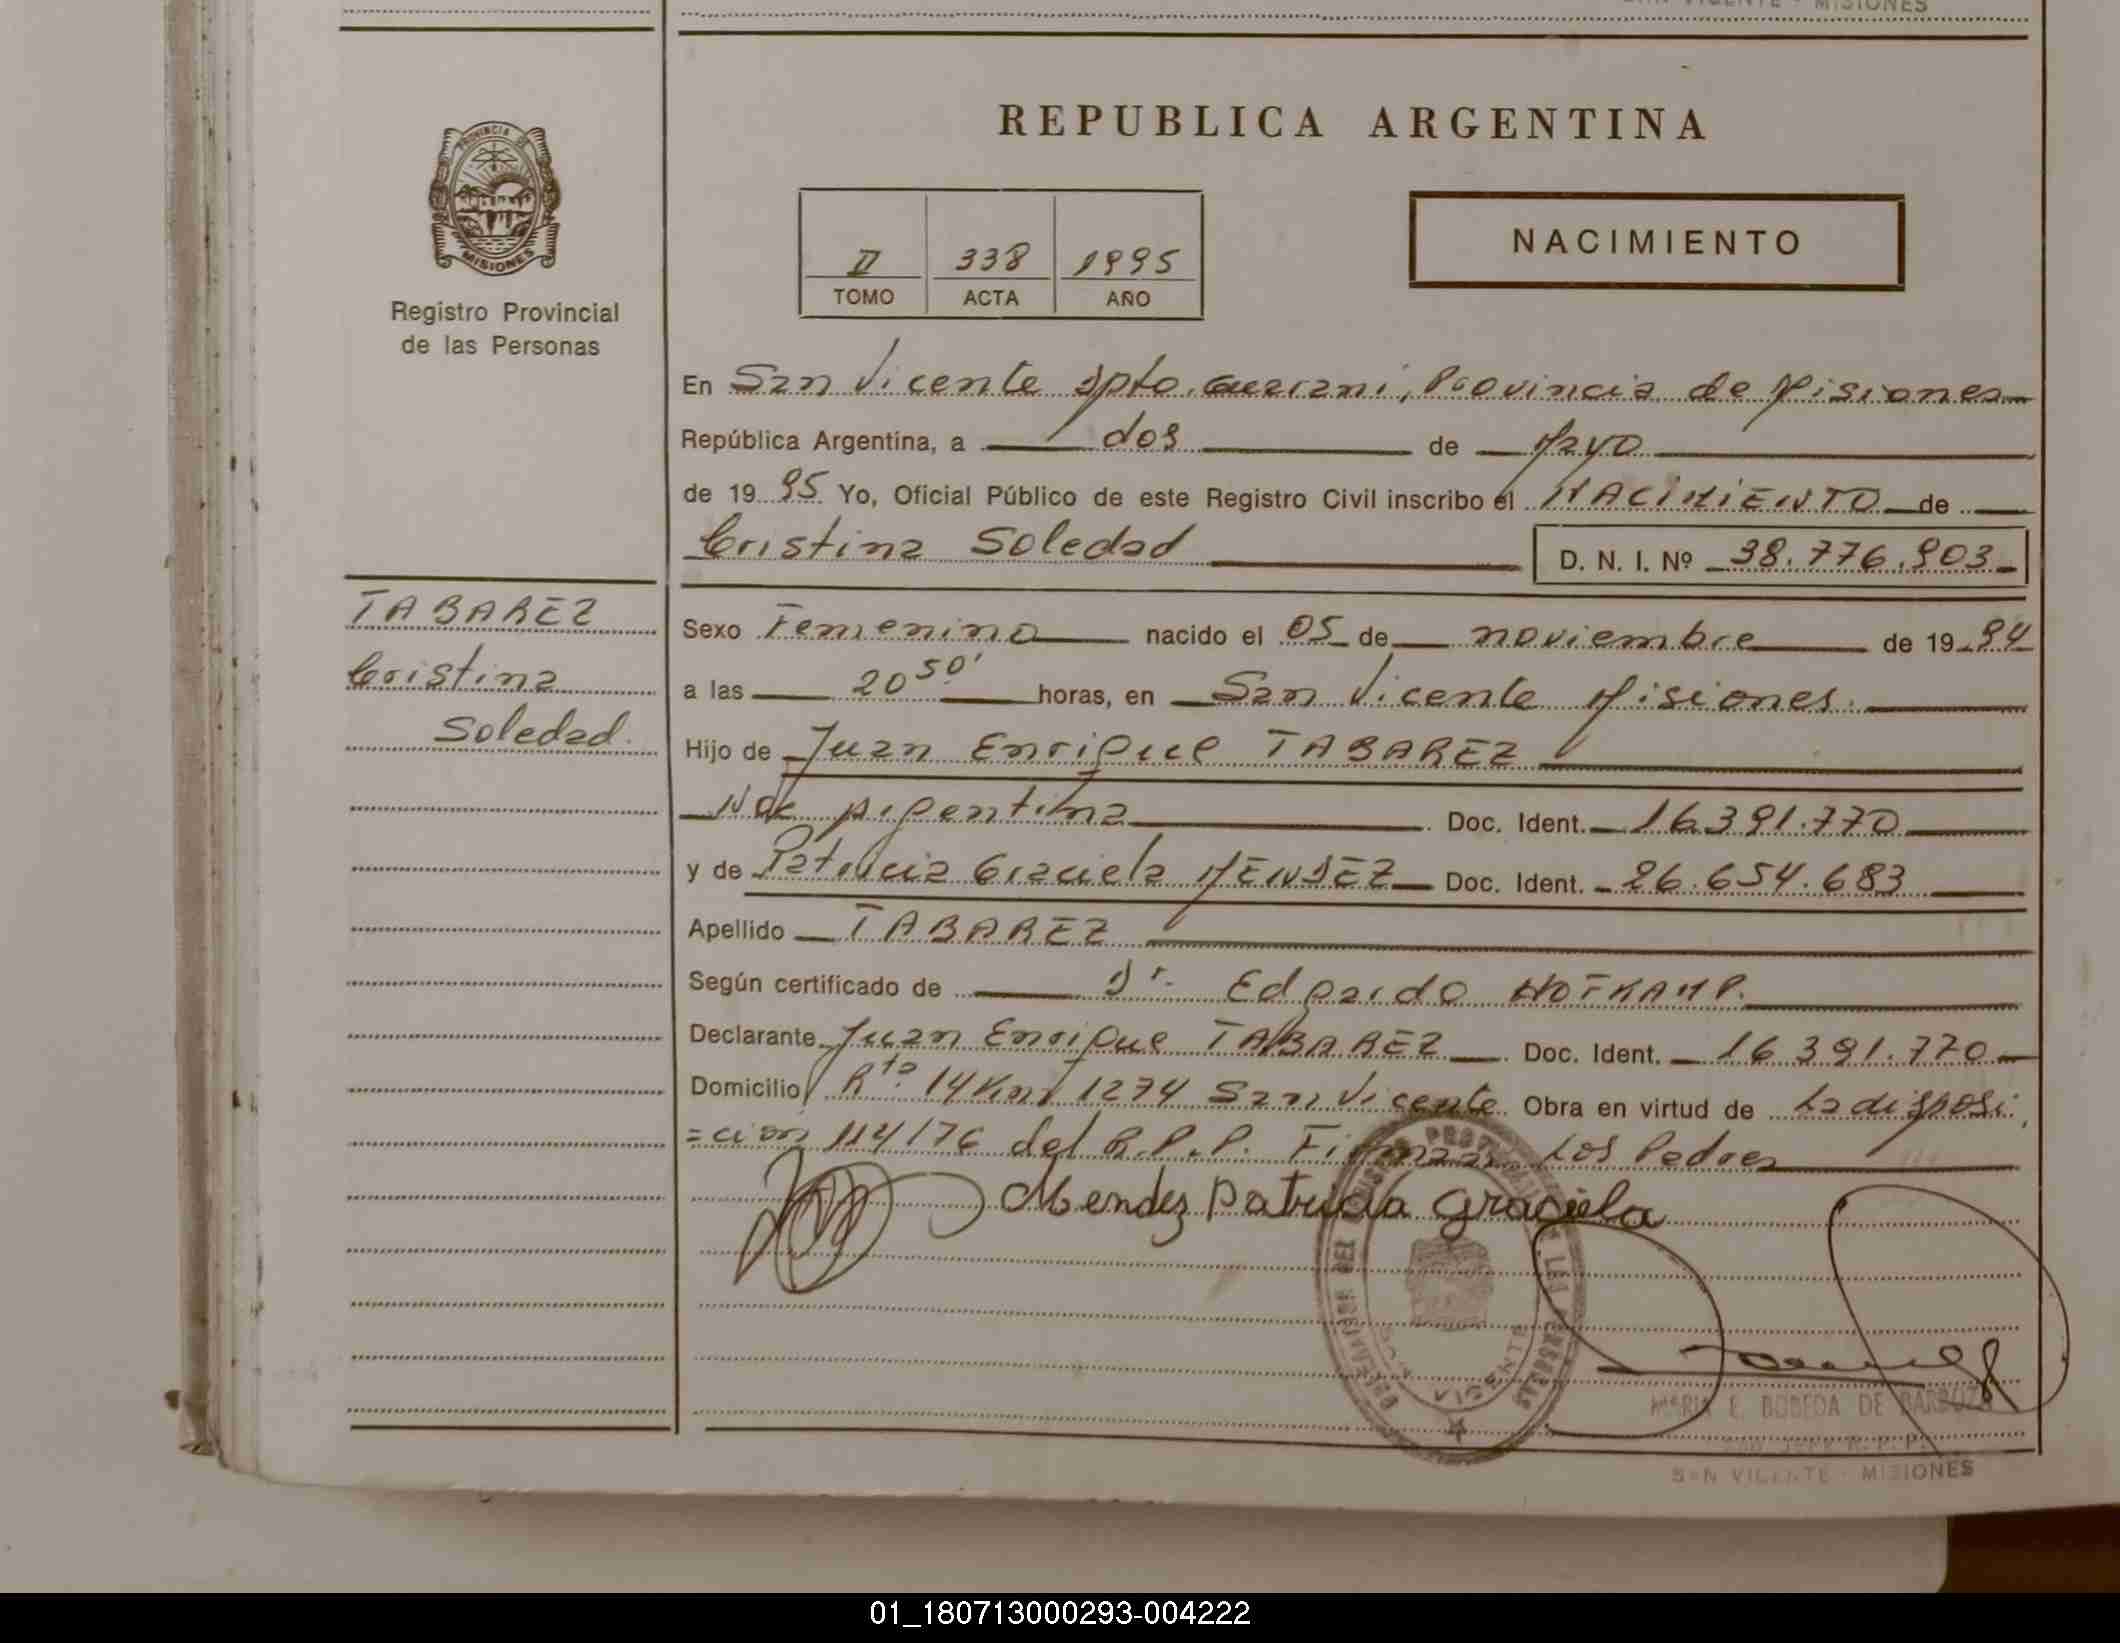 SAN VICENTE - MISIONES
REPUBLICA ARGENTINA
PROVINCIA DE
MISIONES
Registro Provincial
de las Personas
II 338 1995
TOMO ACTA AÑO
NACIMIENTO
En San Vicente Dpto. Guarani, Provincia de Misiones
República Argentina, a dos de Mayo
de 19 95 Yo, Oficial Público de este Registro Civil inscribo el NACIMIENTO de
Cristina Soledad D. N. I. Nº 38.776.903
TABAREZ
Cristina
Soledad.
Sexo Femenino nacido el 05 de noviembre de 19 94
a las 20 50' horas, en San Vicente Misiones.
Hijo de Juan Enrique TABAREZ
Nac Argentina Doc. Ident. 16.391.770
y de Patricia Graciela MENDEZ Doc. Ident. 26.654.683
Apellido TABAREZ
Según certificado de Dr. Edgardo HOFKAMP.
Declarante Juan Enrique TABAREZ Doc. Ident. 16.391.770
Domicilio Rta 14 Km 1274 San Vicente Obra en virtud de La disposi
=cion 114/76 del R.P.P. Firman Los Padres
Mendez Patricia Graciela
MARIA E. BOBEDA DE BARBOZA
SAN VICENTE - MISIONES
01_180713000293-004222